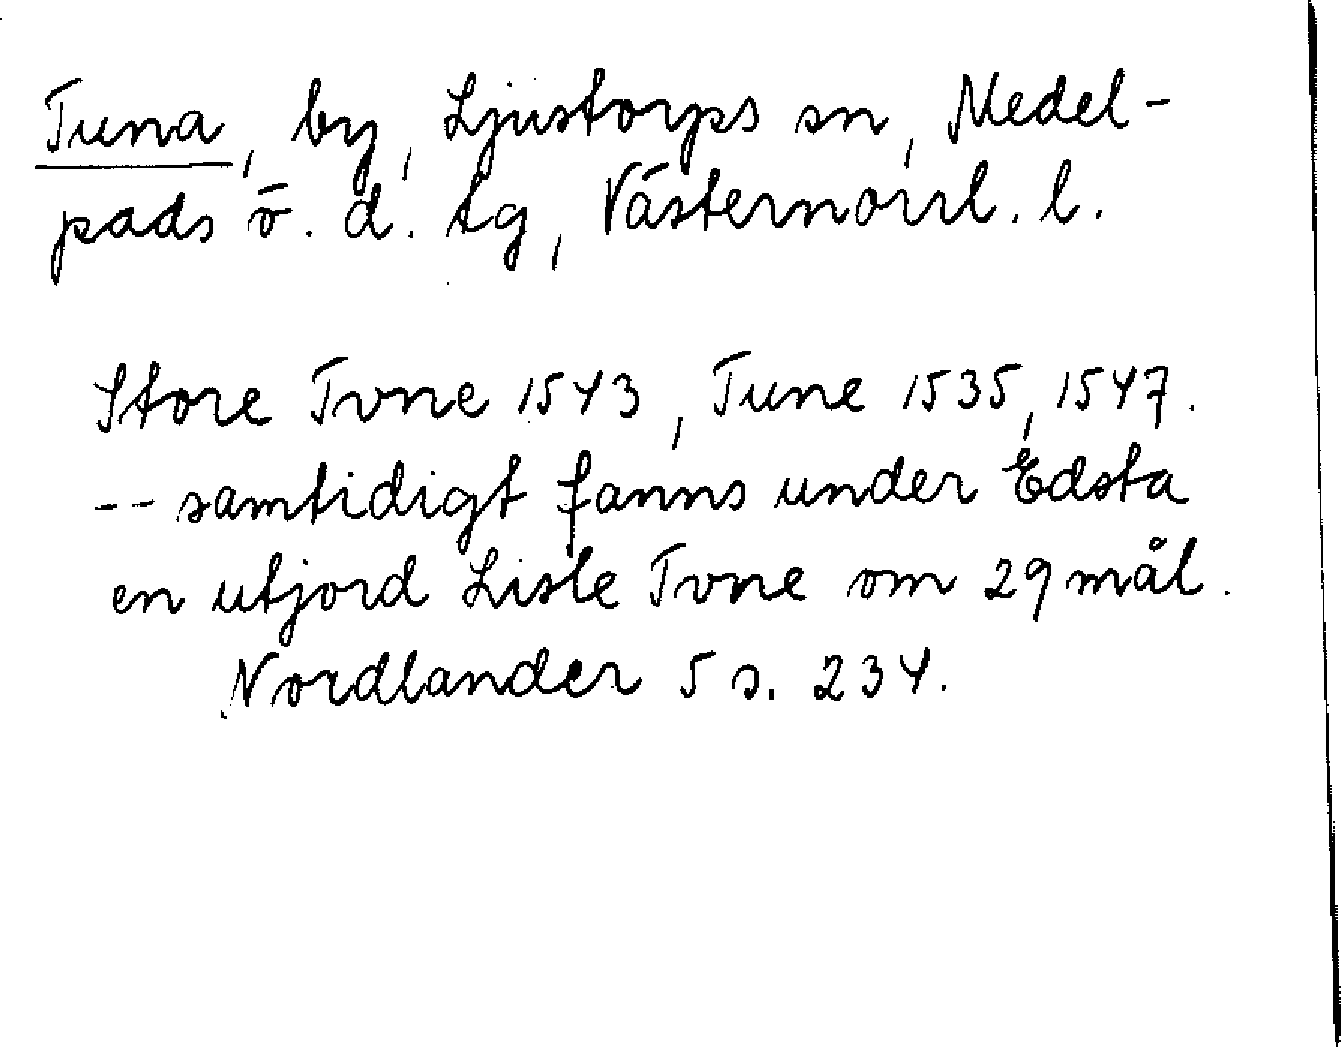 Tuna, by, Ljustorps sn, Medel-
pads ö. d. tg, Västernorrl. l.
Store Tvne 1543, Tune 1535, 1547.
-- samtidigt fanns under Edsta
en utjord Lisle Tvne om 29 mål.
Nordlander 5 s. 234.